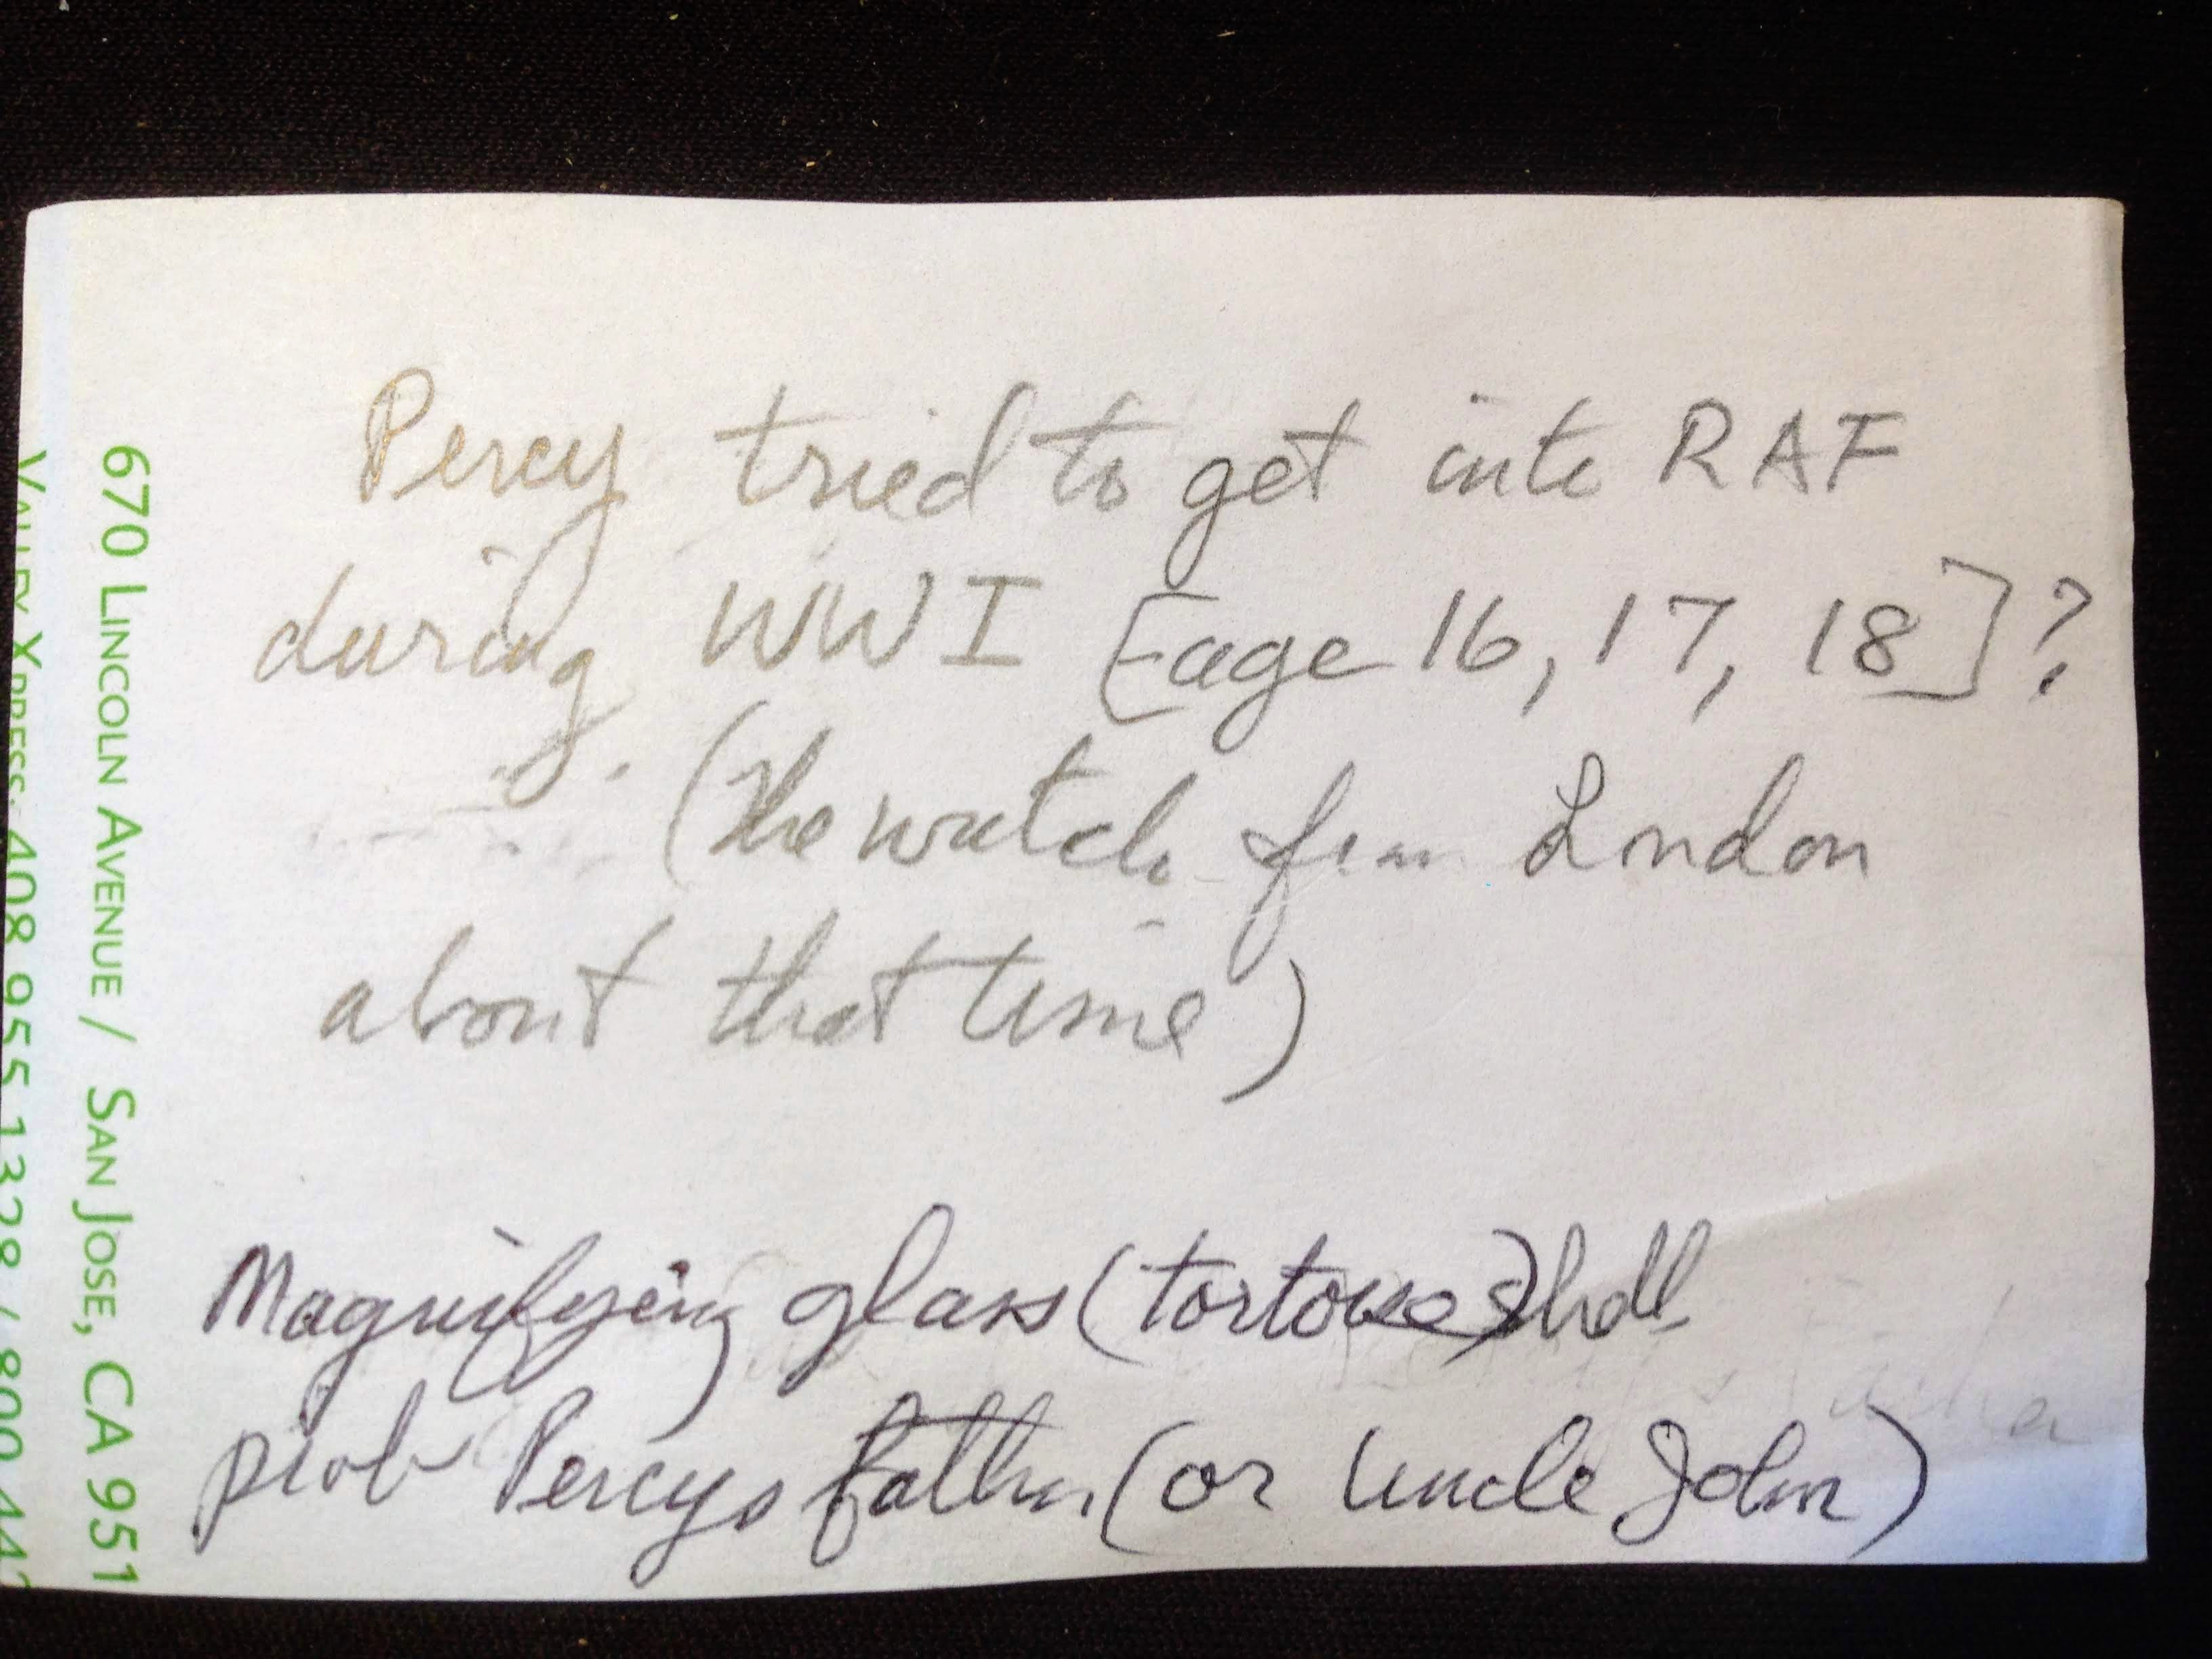 Percy tried to get into RAF
during WWI [age 16, 17, 18]?
(The watch from London
about that time)
Magnifying glass (tortoise)shell
prob Percys father (or Uncle John)
670 LINCOLN AVENUE / SAN JOSE, CA 951
VALLEY XPRESS: 408 955 1328 / 800 44